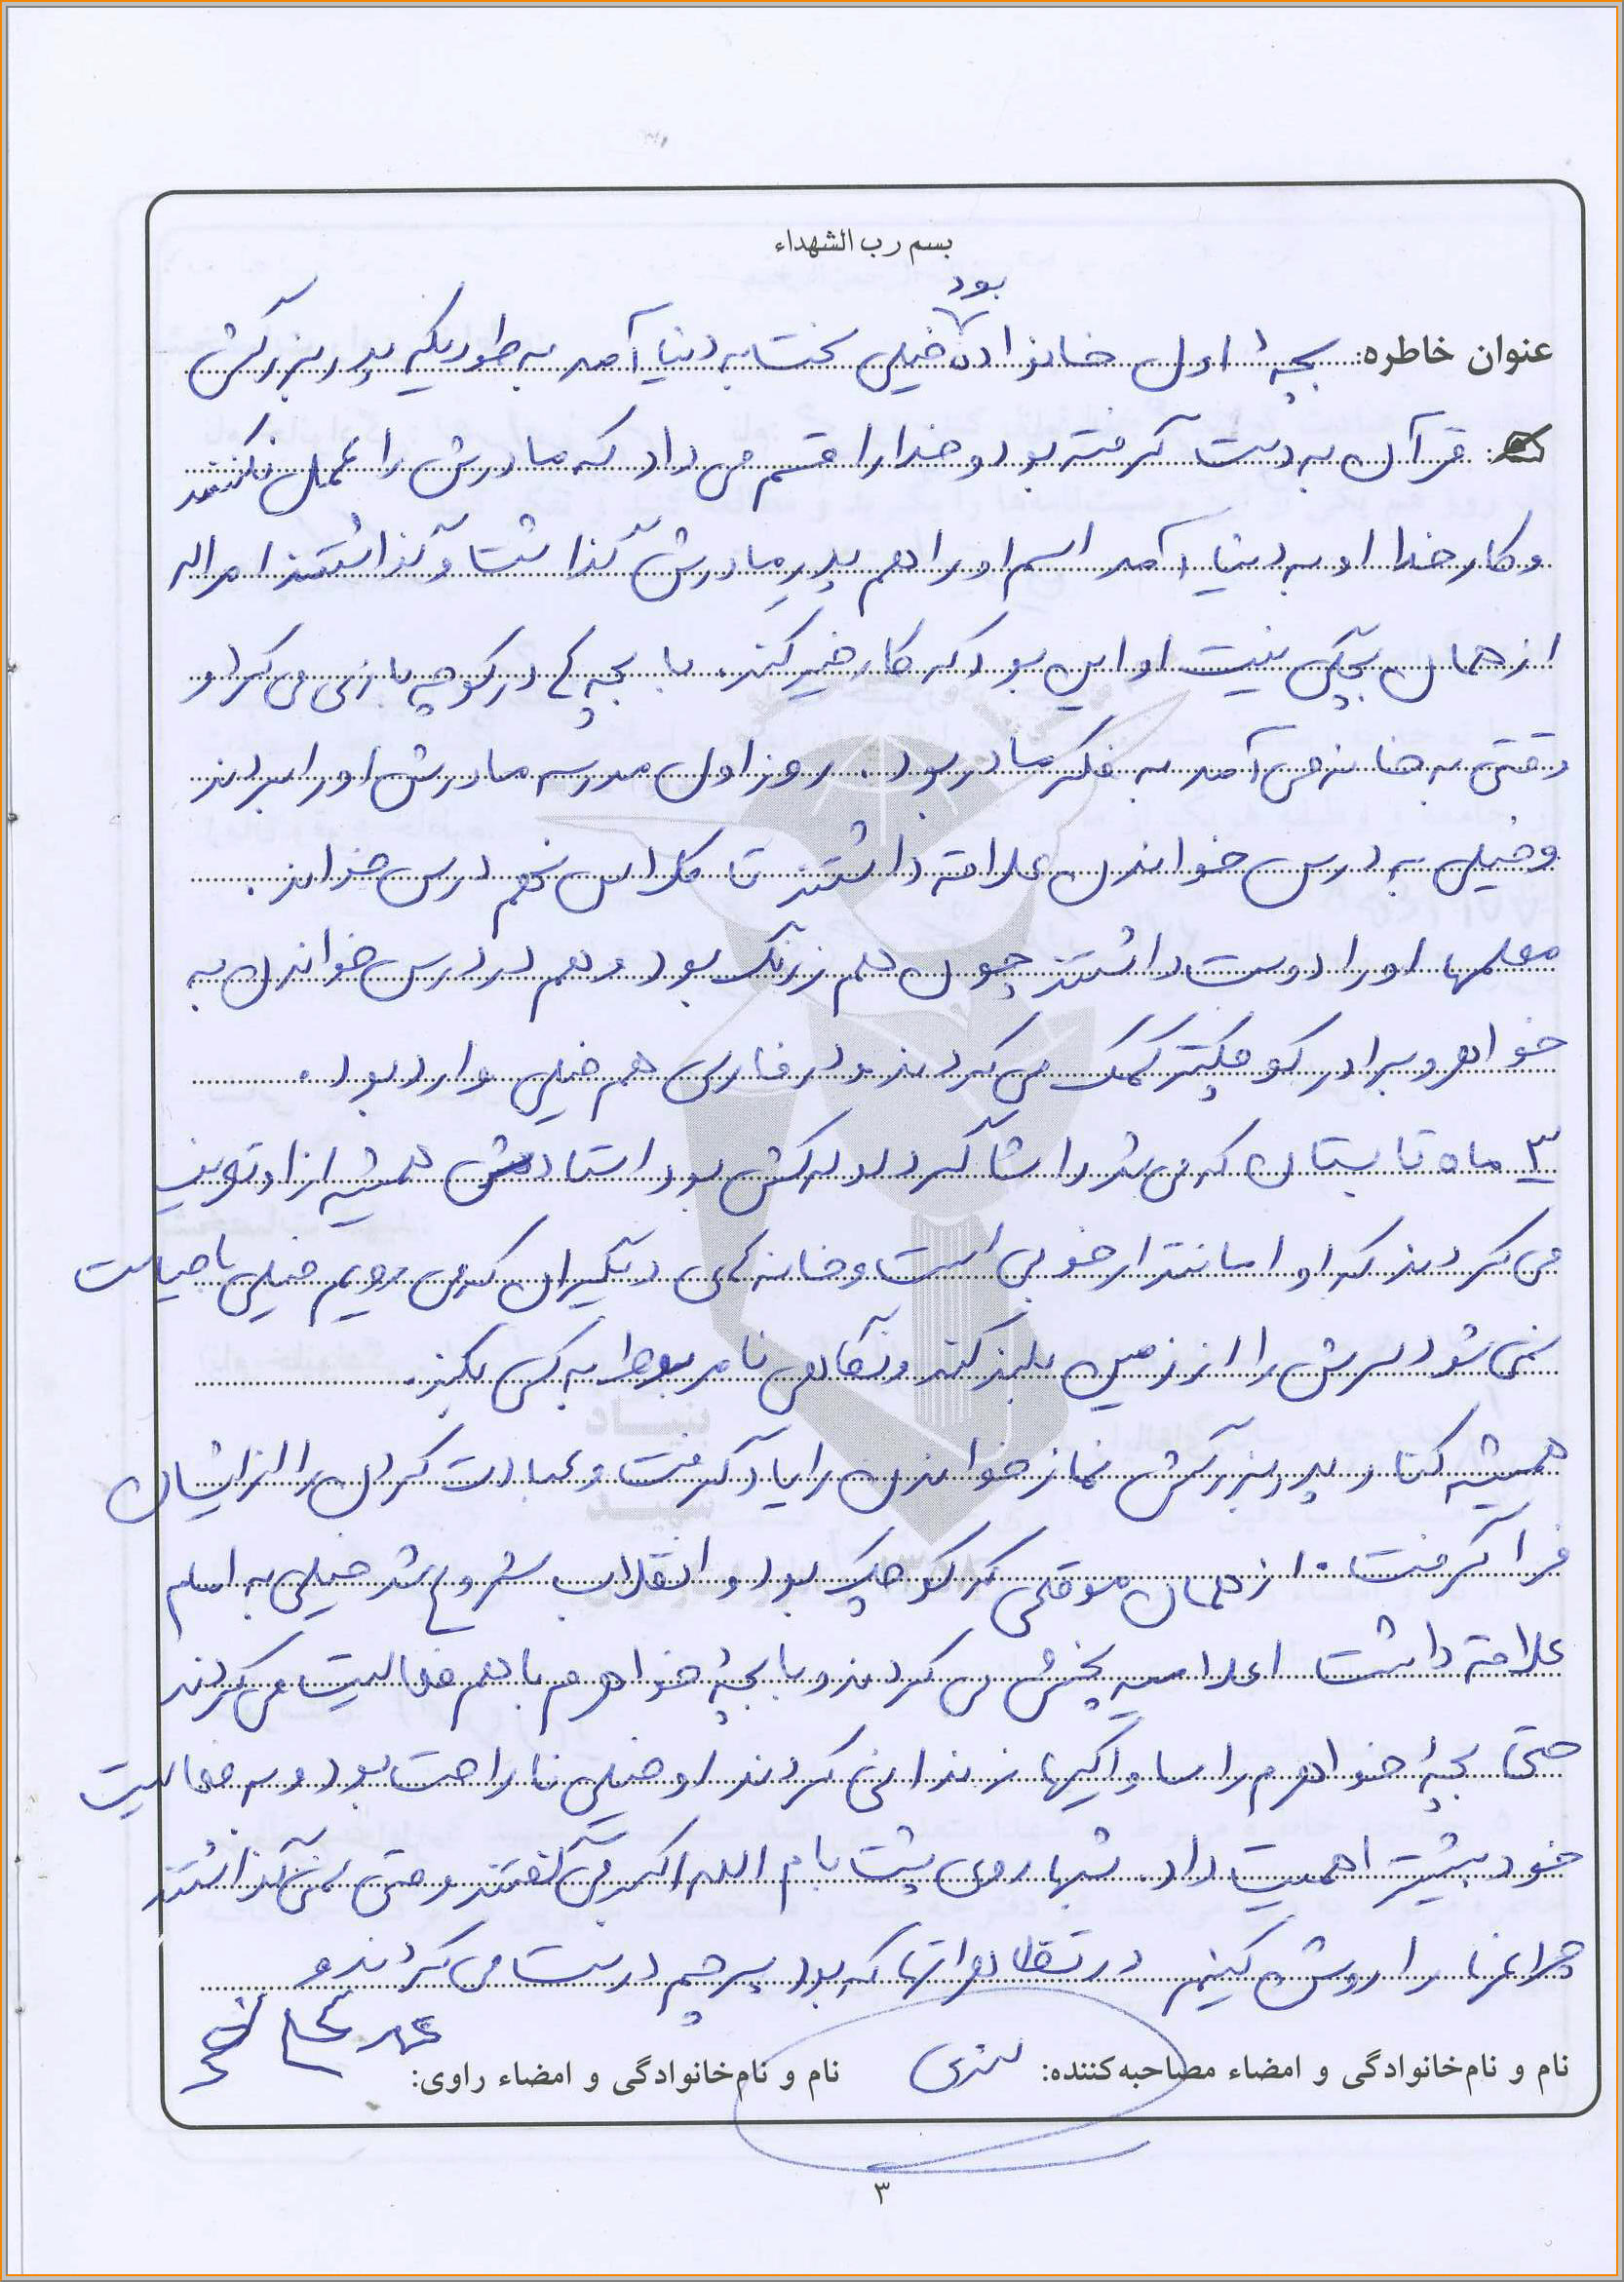 بسم رب الشهداء
بود
عنوان خاطره: بچهٔ اول خانواده خیلی سخت به دنیا آمد به طوریکه پدربزرگش
قرآن به دست گرفته بود و خدا را قسم می داد که مادرش را عمل نکنند
و کار خدا او به دنیا آمد اسم او را هم پدرِ مادرش گذاشت و گذاشتند امراله
از همان بچگی نیت او این بود که کار خیر کند. با بچه های در کوچه بازی می کرد و
وقتی به خانه می آمد به فکر مادر بود. روز اول مدرسه مادرش او را بردند
و خیلی به درس خواندن علاقه داشتند تا کلاس نهم درس خواند.
معلمها او را دوست داشتند چون هم زرنگ بود و هم در درس خواندن به
خواهر و برادر کوچکتر کمک می کردند و در فارسی هم خیلی وارد بود.
۳ ماه تابستان که می شد را شاگرد لوله کش بود استادش همیشه از او تعریف
می کردند که او امانتدار خوبی است و خانه های دیگران که می رویم خیلی با حیاست
نمی شود سرش را از زمین بلند کند و نگاهی نامربوط به کسی بکند.
همیشه کنار پدربزرگش نماز خواندن را یاد گرفت و عبادت کردن را از ایشان
فرا گرفت. از همان موقعی که کوچک بود و انقلاب شروع شد خیلی به امام
علاقه داشت اعلامیه پخش می کردند و با بچهٔ خواهرم با هم فعالیت می کردند
حتی بچهٔ خواهرم را ساواکیها زندانی کردند او خیلی ناراحت بود و به فعالیت
خود بیشتر اهمیت داد. شبها روی پشت بام الله اکبر می گفتند و حتی نمی گذاشتند
چراغها را روشن کنیم در تظاهراتها که بود پرچم درست می کردند و
نام و نام‌خانوادگی و امضاء مصاحبه‌کننده:
نام و نام‌خانوادگی و امضاء راوی:
۳